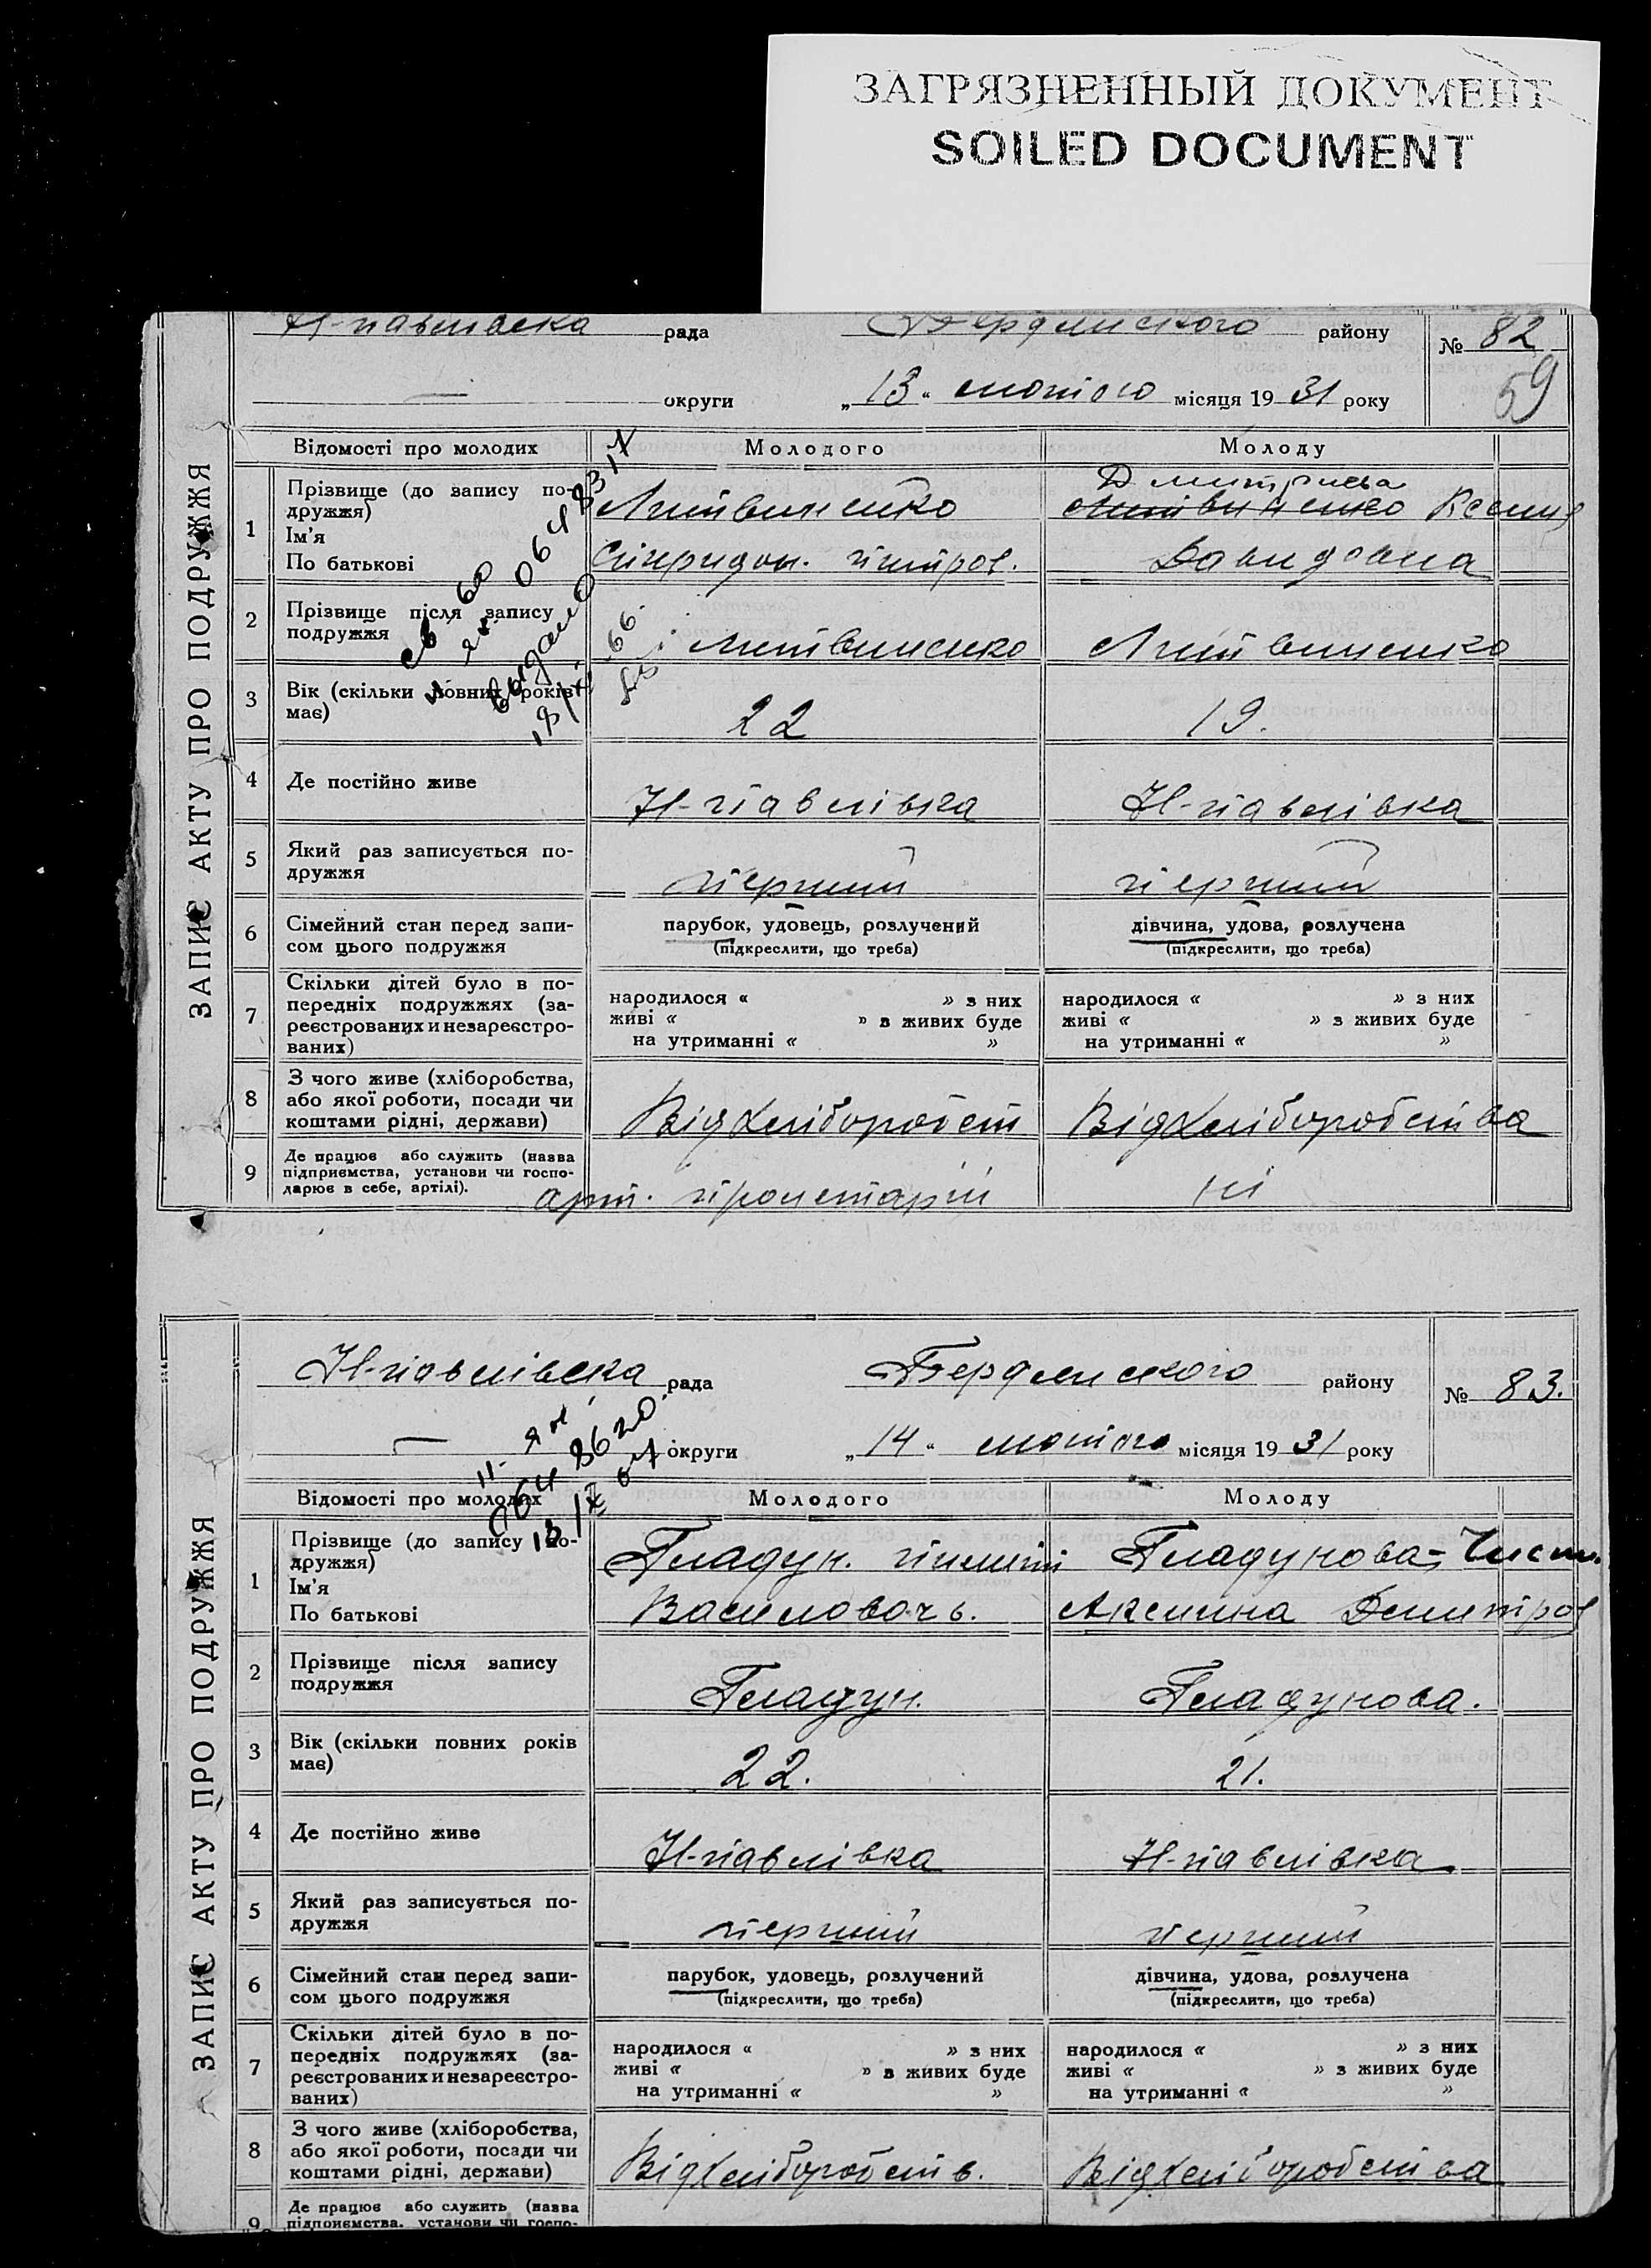 ЗАГРЯЗНЕННЫЙ ДОКУМЕНТ
SOILED DOCUMENT
Н-павлівска рада Бердянского району № 82
59
— округи „13“ лютого місяця 1931 року
ЗАПИС АКТУ ПРО ПОДРУЖЖЯ
Відомості про молодих Молодого Молоду
1 Прізвище (до запису по-
дружжя)
Ім'я
По батькові
Литвиненко
Спиридон. пітров.
Дмитриева
Литвиненко Ксения
Давидовна
2 Прізвище після запису
подружжя
Литвиненко Литвиненко
выдано
3 Вік (скільки повних років
має)
22 19.
4 Де постійно живе
Н-павлівка Н-павлівка
5 Який раз записується по-
дружжя
перший перший
6 Сімейний стан перед запи-
сом цього подружжя
парубок, удовець, розлучений
(підкреслити, що треба)
дівчина, удова, розлучена
(підкреслити, що треба)
7 Скільки дітей було в по-
передніх подружжях (за-
реєстрованих и незареєстро-
ваних)
народилося « » з них
живі « » в живих буде
на утриманні « »
народилося « » з них
живі « » з живих буде
на утриманні « »
8 З чого живе (хліборобства,
або якої роботи, посади чи
коштами рідні, держави)
Від хліборобст Від хліборобства
9 Де працює або служить (назва
підприємства, установи чи госпо-
дарює в себе, артілі).
арт. пролетарій ні
Н-павлівска рада Бердянского району № 83.
— округи „14“ лютого місяця 1931 року
ЗАПИС АКТУ ПРО ПОДРУЖЖЯ
Відомості про молодих Молодого Молоду
1 Прізвище (до запису по-
дружжя)
Ім'я
По батькові
Гладун. пилип
Василовачь.
Гладунова-Чист.
Аксинина Дмитров
2 Прізвище після запису
подружжя
Гладун. Гладунова.
3 Вік (скільки повних років
має)
22. 21.
4 Де постійно живе
Н-павлівка Н-павлівка
5 Який раз записується по-
дружжя
перший перший
6 Сімейний стан перед запи-
сом цього подружжя
парубок, удовець, розлучений
(підкреслити, що треба)
дівчина, удова, розлучена
(підкреслити, що треба)
7 Скільки дітей було в по-
передніх подружжях (за-
реєстрованих и незареєстро-
ваних)
народилося « » з них
живі « » в живих буде
на утриманні « »
народилося « » з них
живі « » з живих буде
на утриманні « »
8 З чого живе (хліборобства,
або якої роботи, посади чи
коштами рідні, держави)
Від хліборобств. Від хліборобства
9 Де працює або служить (назва
підприємства, установи чи госпо-